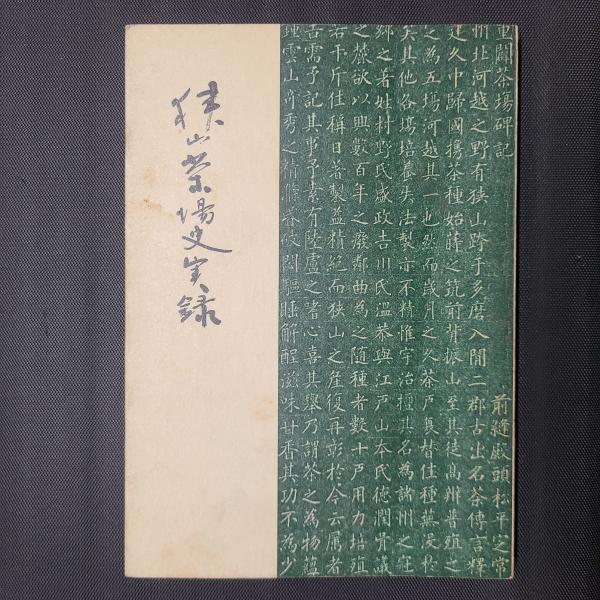 狭山茶場史実録
重闢茶場碑記 前縫殿頭松平定常
州北河越之野有狭山跨乎多磨入間二郡古出名茶傳言釋
建久中歸國攜茶種始蒔之筑前背振山至其徒高辨普殖之
之為五場河越其一也然而歳月之久茶戸替佳種蕪没
矣其他各場培養失法製亦不精惟宇治擅其名為諸州之
郷之著姓村野氏盛政吉川氏温恭與江戸山本氏徳潤胥議
之麓欲以興數百年之廢鄰曲為之随種者數十戸用力培殖
若干斤佳稱日著製益精絶而狭山之産復再彰於今云属者
需予記其事予素有陸盧之嗜心喜其擧乃謂茶之為物蘊
鍾雲山奇秀之精破悶驅睡解酲滋味甘香其功不為少